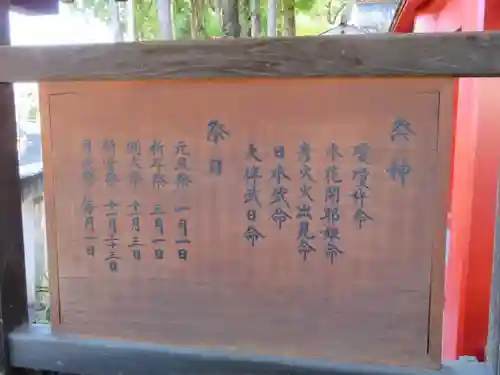 祭神
瓊瓊杵命
木花開耶姫命
彦火火出見命
日本武命
大伴武日命
祭日
元旦祭 一月一日
祈年祭 三月一日
例大祭 十一月三日
新嘗祭 十一月二十三日
月次祭 毎月一日